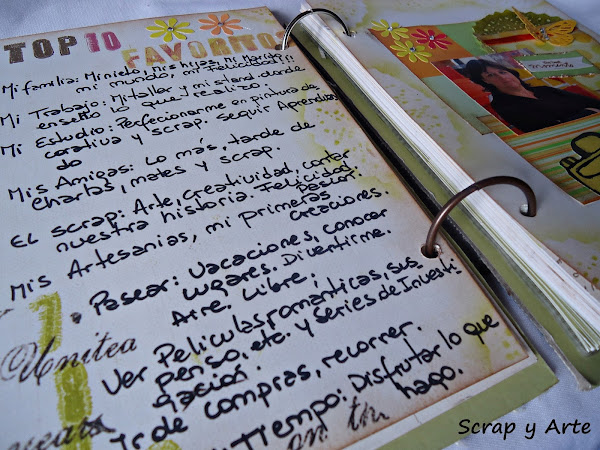 TOP 10
FAVORITOS
Mi familia: Mi nieto, mis hijas, mi Marido
mi mundo, mi Felicidad!!
Mi Trabajo: Mi taller y mi stand donde
enseño lo que realizo.
Mi Estudio: Perfecionarme en pintura de
corativa y scrap. Seguir Aprendien
do
Mis Amigas: Lo más, tarde de
charlas, mates y scrap.
El scrap: Arte, creatividad, contar
nuestra historia. Felicidad
Mis Artesanias, mi primeras
creaciones.
Pasear: Vacaciones, conocer
lugares. Divertirme.
Aire, Libre.
Ver Películas románticas, sus
penso, etc. y series de Investi
gación.
Ir de compras, recorrer.
Tiempo: Disfrutar lo que
hago.
Unitea
years
on th
Scrap y Arte